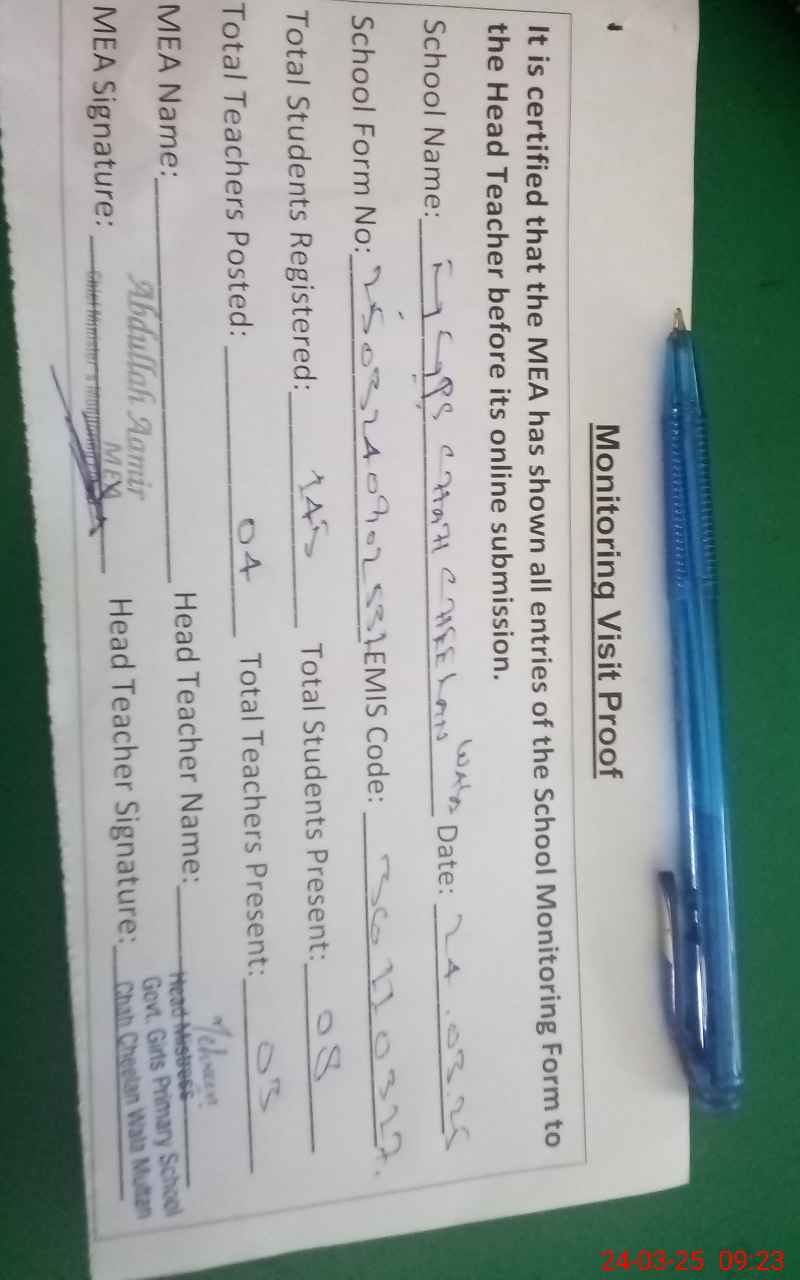 Monitoring Visit Proof
It is certified that the MEA has shown all entries of the School Monitoring Form to
the Head Teacher before its online submission.
School Name: GGPS CHAH Wala Date: 24.03.25
School Form No: EMIS Code:
Total Students Registered: 145 Total Students Present: 08
Total Teachers Posted: 04 Total Teachers Present: 03
MEA Name: Abdullah Aamir Head Teacher Name:
MEA
MEA Signature: Chief Minister's Head Teacher Signature:
Head Mistress
Govt. Girls Primary School
Chah Cheelan Wala Multan
24-03-25 09:23